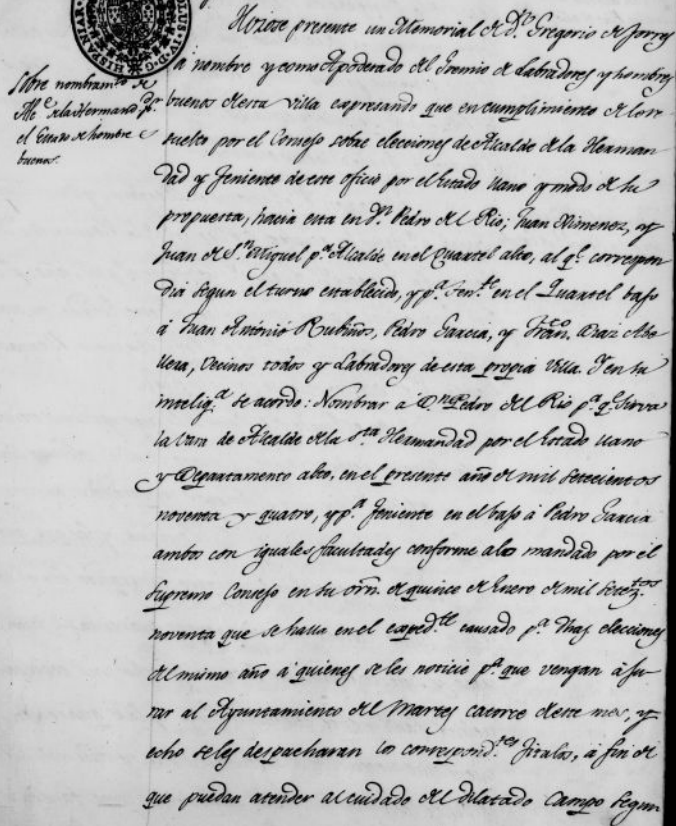 Hizose presente un Memorial de Dn. Gregorio de Torres
à nombre y como Apoderado del Gremio de Labradores y hombres
buenos de esta villa expresando que en cumplimiento de lo re
suelto por el Consejo sobre elecciones de Alcalde de la Herman
dad y Teniente de este oficio por el Estado llano y modo de su
propuesta, hacia esta en Dn. Pedro del Rio; Juan Ximenez, y
Juan de Sn. Miguel pa. Alcalde en el Quartel alto, al qe. correspon
dia segun el turno establecido, y pa. Tente. en el Quartel baxo
à Juan Antonio Rubiños, Pedro Garcia, y Franco. Diaz Abe
llera, vecinos todos y Labradores de esta propia Villa. Y en su
inteliga. se acordo: Nombrar a Dn. Pedro del Rio pa. qe. sirva
la vara de Alcalde de la Sta. Hermandad por el Estado llano
y Departamento alto, en el presente año de mil setecientos
noventa y quatro, y pa. Teniente en el baxo à Pedro Garcia
ambos con iguales facultades conforme a lo mandado por el
Supremo Consejo en su orn. de quince de Enero de mil seteztos.
noventa que se halla en el expedte. causado pa. dhas elecciones
del mismo año à quienes se les noticie pa. que vengan à ju-
rar al Ayuntamiento del Martes catorce de este mes, y
echo se les despacharan los correspondtes. Titulos, à fin de
que puedan atender al cuidado del dilatado Campo segun
Sobre nombramto. de
Alce. de la Hermandd. pr.
el Estado de hombres
buenos.